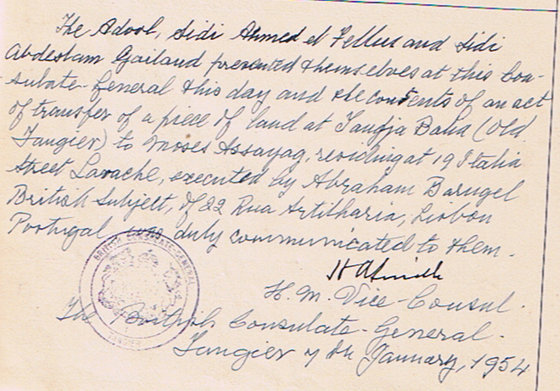 The Adool, Sidi Ahmed el Fellus and Sidi
Abdeslam Gailand presented themselves at this Con-
sulate-General this day and the contents of an act
of transfer of a piece of land at Tandja Balia (Old
Tangier) to Moses Assayag, residing at 19 Italia
Street Larache, executed by Abraham Barugel
British Subject, of 22 Rua Artilharia, Lisbon
Portugal, was duly communicated to them.
H. M. Vice-Consul.
The British Consulate-General.
Tangier 7th January, 1954
BRITISH CONSULATE GENERAL
TANGIER